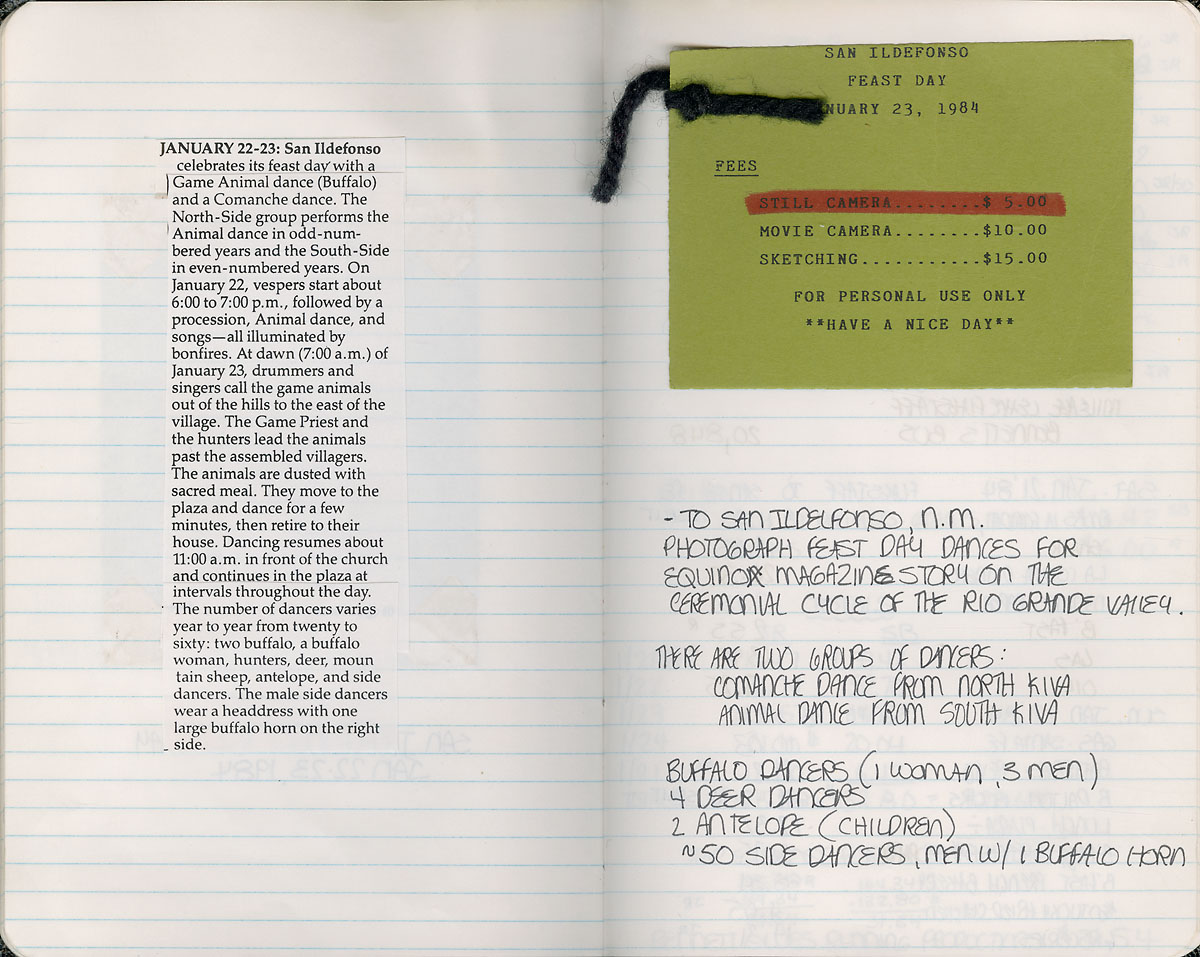 JANUARY 22-23: San Ildefonso
celebrates its feast day with a
Game Animal dance (Buffalo)
and a Comanche dance. The
North-Side group performs the
Animal dance in odd-num-
bered years and the South-Side
in even-numbered years. On
January 22, vespers start about
6:00 to 7:00 p.m., followed by a
procession, Animal dance, and
songs—all illuminated by
bonfires. At dawn (7:00 a.m.) of
January 23, drummers and
singers call the game animals
out of the hills to the east of the
village. The Game Priest and
the hunters lead the animals
past the assembled villagers.
The animals are dusted with
sacred meal. They move to the
plaza and dance for a few
minutes, then retire to their
house. Dancing resumes about
11:00 a.m. in front of the church
and continues in the plaza at
intervals throughout the day.
The number of dancers varies
year to year from twenty to
sixty: two buffalo, a buffalo
woman, hunters, deer, moun
tain sheep, antelope, and side
dancers. The male side dancers
wear a headdress with one
large buffalo horn on the right
side.
SAN ILDEFONSO
FEAST DAY
NUARY 23, 1984
FEES
STILL CAMERA........$ 5.00
MOVIE CAMERA........$10.00
SKETCHING...........$15.00
FOR PERSONAL USE ONLY
**HAVE A NICE DAY**
- TO SAN ILDELFONSO, N.M.
PHOTOGRAPH FEAST DAY DANCES FOR
EQUINOX MAGAZINE STORY ON THE
CEREMONIAL CYCLE OF THE RIO GRANDE VALLEY.
THERE ARE TWO GROUPS OF DANCERS:
COMANCHE DANCE FROM NORTH KIVA
ANIMAL DANCE FROM SOUTH KIVA
BUFFALO DANCERS (1 WOMAN, 3 MEN)
4 DEER DANCERS
2 ANTELOPE (CHILDREN)
~50 SIDE DANCERS, MEN W/ 1 BUFFALO HORN